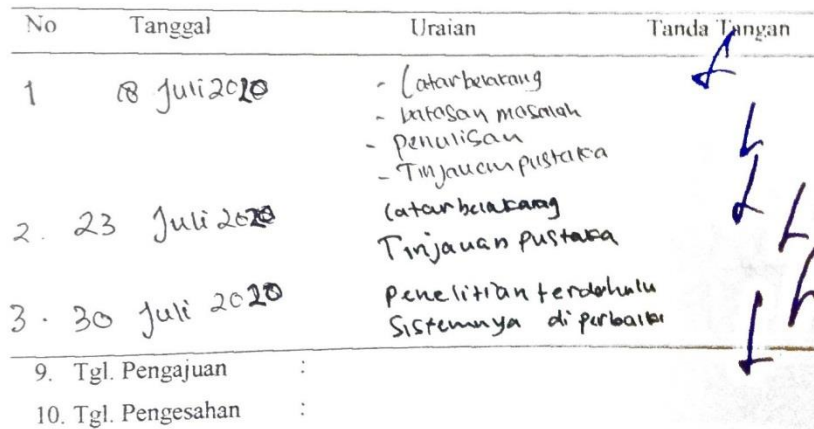 No Tanggal Uraian Tanda Tangan
1 18 Juli 2020 - Latar belakang
- batasan masalah
- penulisan
- Tinjauan pustaka
2. 23 Juli 2020 Latar belakang
Tinjauan pustaka
3. 30 Juli 2020 Penelitian terdahulu
Sistemnya diperbaiki
9. Tgl. Pengajuan :
10. Tgl. Pengesahan :